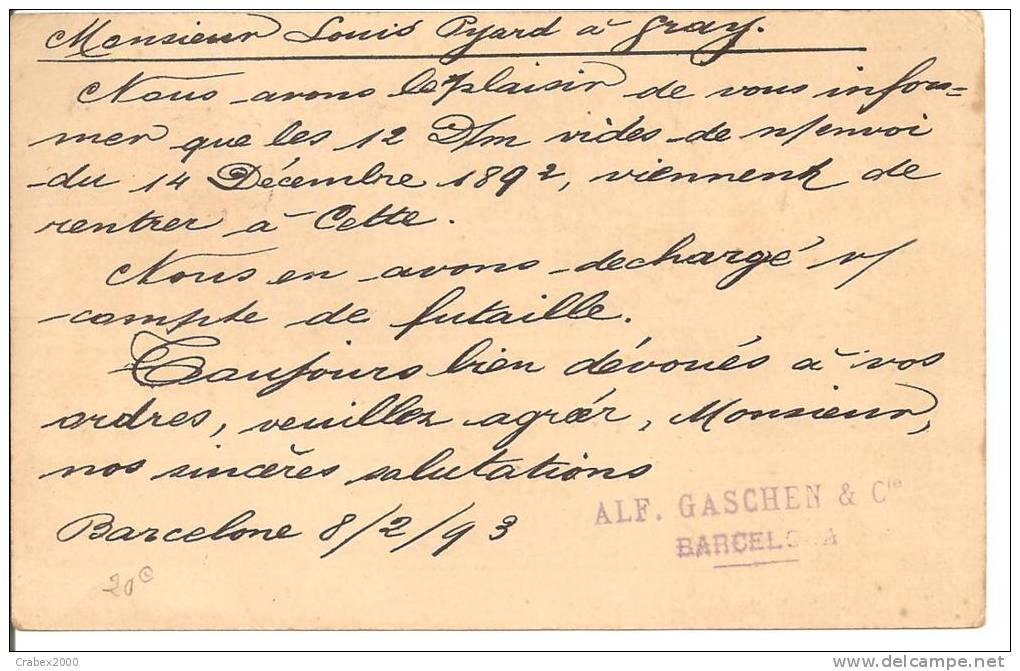 Monsieur Louis Pyard à Gray.
Nous avons le plaisir de vous infor=
mer que les 12 D/m vides de n/envoi
du 14 Décembre 1892, viennent de
rentrer à Cette.
Nous en avons dechargé v/
compte de futaille.
Toujours bien dévoués à vos
ordres, veuillez agréer, Monsieur,
nos sincères salutations
Barcelone 8/2/93
ALF. GASCHEN & Cie
BARCELONA
20 c
Crabex2000
www.delcampe.net